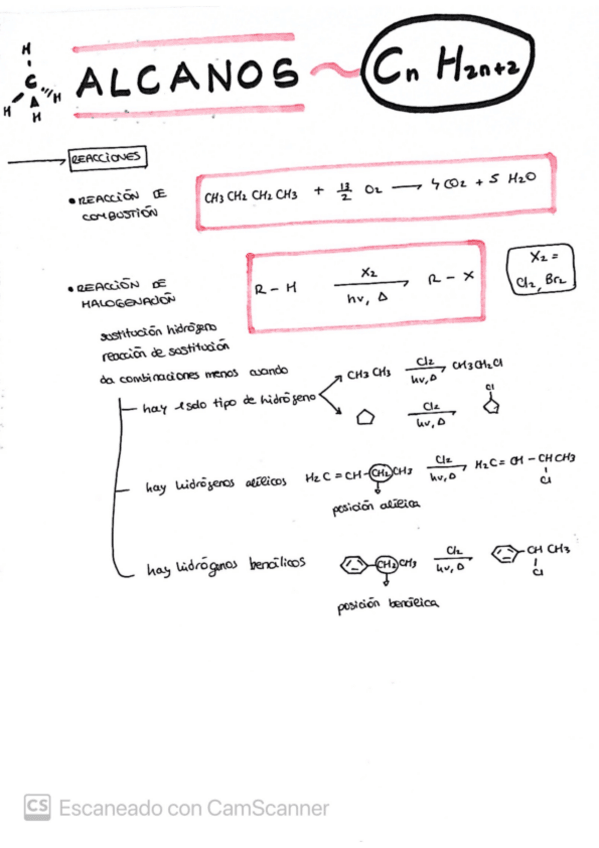 ALCANOS ~ Cn H2n+2
H
C
H H H
→ REACCIONES
• REACCIÓN DE
COMBUSTIÓN
CH3 CH2 CH2 CH3 + 13/2 O2 → 4 CO2 + 5 H2O
• REACCIÓN DE
HALOGENACIÓN
R - H X2 → hv, Δ R - X
X2 =
Cl2, Br2
sustitución hidrógeno
reacción de sustitución
da combinaciones menos cuando
hay 1 solo tipo de hidrógeno
CH3 CH3 Cl2 → hv, Δ CH3CH2Cl
Cl2 → hv, Δ Cl
hay hidrógenos alílicos H2C = CH - CH2 CH3 Cl2 → hv, Δ H2C = CH - CH CH3
Cl
posición alílica
hay hidrógenos bencílicos CH2 CH3 Cl2 → hv, Δ CH CH3
Cl
posición bencílica
CS Escaneado con CamScanner